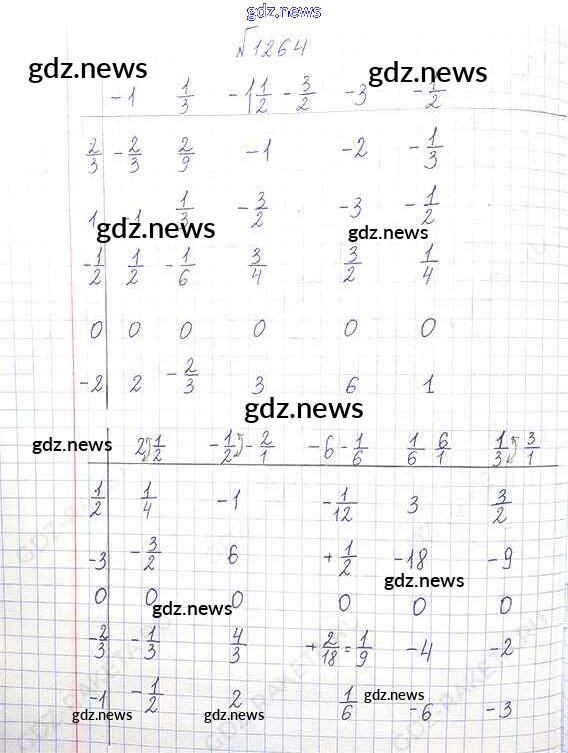 gdz.news
№1264
gdz.news gdz.news
-1 1/3 -1 1/2 -3/2 -3 -1/2
2/3 -2/3 2/9 -1 -2 -1/3
1 -1 1/3 -3/2 -3 -1/2
gdz.news gdz.news
-1/2 1/2 -1/6 3/4 3/2 1/4
0 0 0 0 0 0
-2 2 -2/3 3 6 1
gdz.news
gdz.news 2 1/2 -1/2 -2/1 -6 -1/6 1/6 6/1 1/3 3/1
1/2 1/4 -1 -1/12 3 3/2
-3 -3/2 6 +1/2 -18 -9
gdz.news
0 0 0 0 0 0
gdz.news
-2/3 -1/3 4/3 +2/18 = 1/9 -4 -2
-1 -1/2 2 1/6 -6 -3
gdz.news gdz.news gdz.news gdz.news